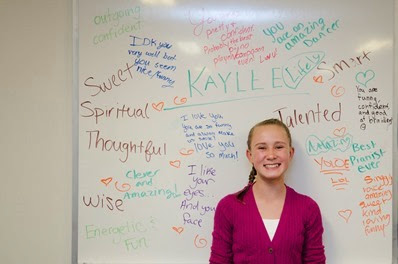 outgoing
confident
IDK you
very well but
you seem
nice/funny
You're
pretty
confident
Probably the best
piano
player/singer
ever LOL!!
You are
an amazing
Dancer
KAYLEE
Likely
Smart
You are
funny,
confident,
and good
at
Sweet
Spiritual
Thoughtful
wise
Energetic &
Fun
Clever
and
Amazing!
I love you
you are so funny
and always make us
smile!
love you
so much!
I like
your
eyes
And your
face
Talented
Amazing
YOU'RE
LOL
Best
Pianist
ever
Singing
voice
amazing
sweet
kind
loving
funny